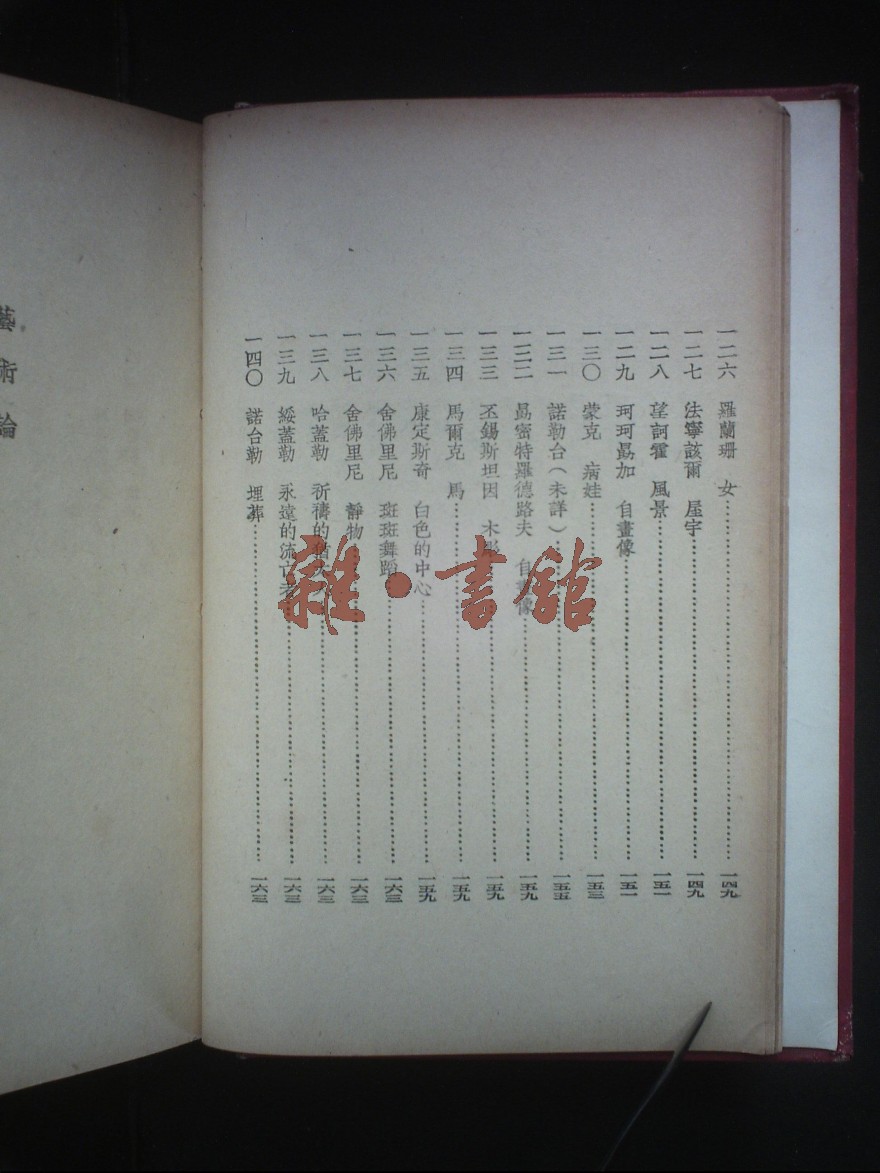 一二六 羅蘭珊 女……一四九
一二七 法寧該爾 屋宇……一四九
一二八 望訶霍 風景……一五一
一二九 珂珂勗加 自畫像……一五一
一三〇 蒙克 病娃……一五三
一三一 諾勒台(未詳)……一五五
一三二 勗密特羅德路夫 自畫像……一五九
一三三 丕錫斯坦因 木彫……一五九
一三四 馬爾克 馬……一五九
一三五 康定斯奇 白色的中心……一五九
一三六 舍佛里尼 斑斑舞蹈……一六三
一三七 舍佛里尼 靜物……一六三
一三八 哈蓋勒 祈禱的猶……一六三
一三九 綏蓋勒 永遠的流亡者……一六三
一四〇 諾台勒 埋葬……一六三
藝術論
雜·書館